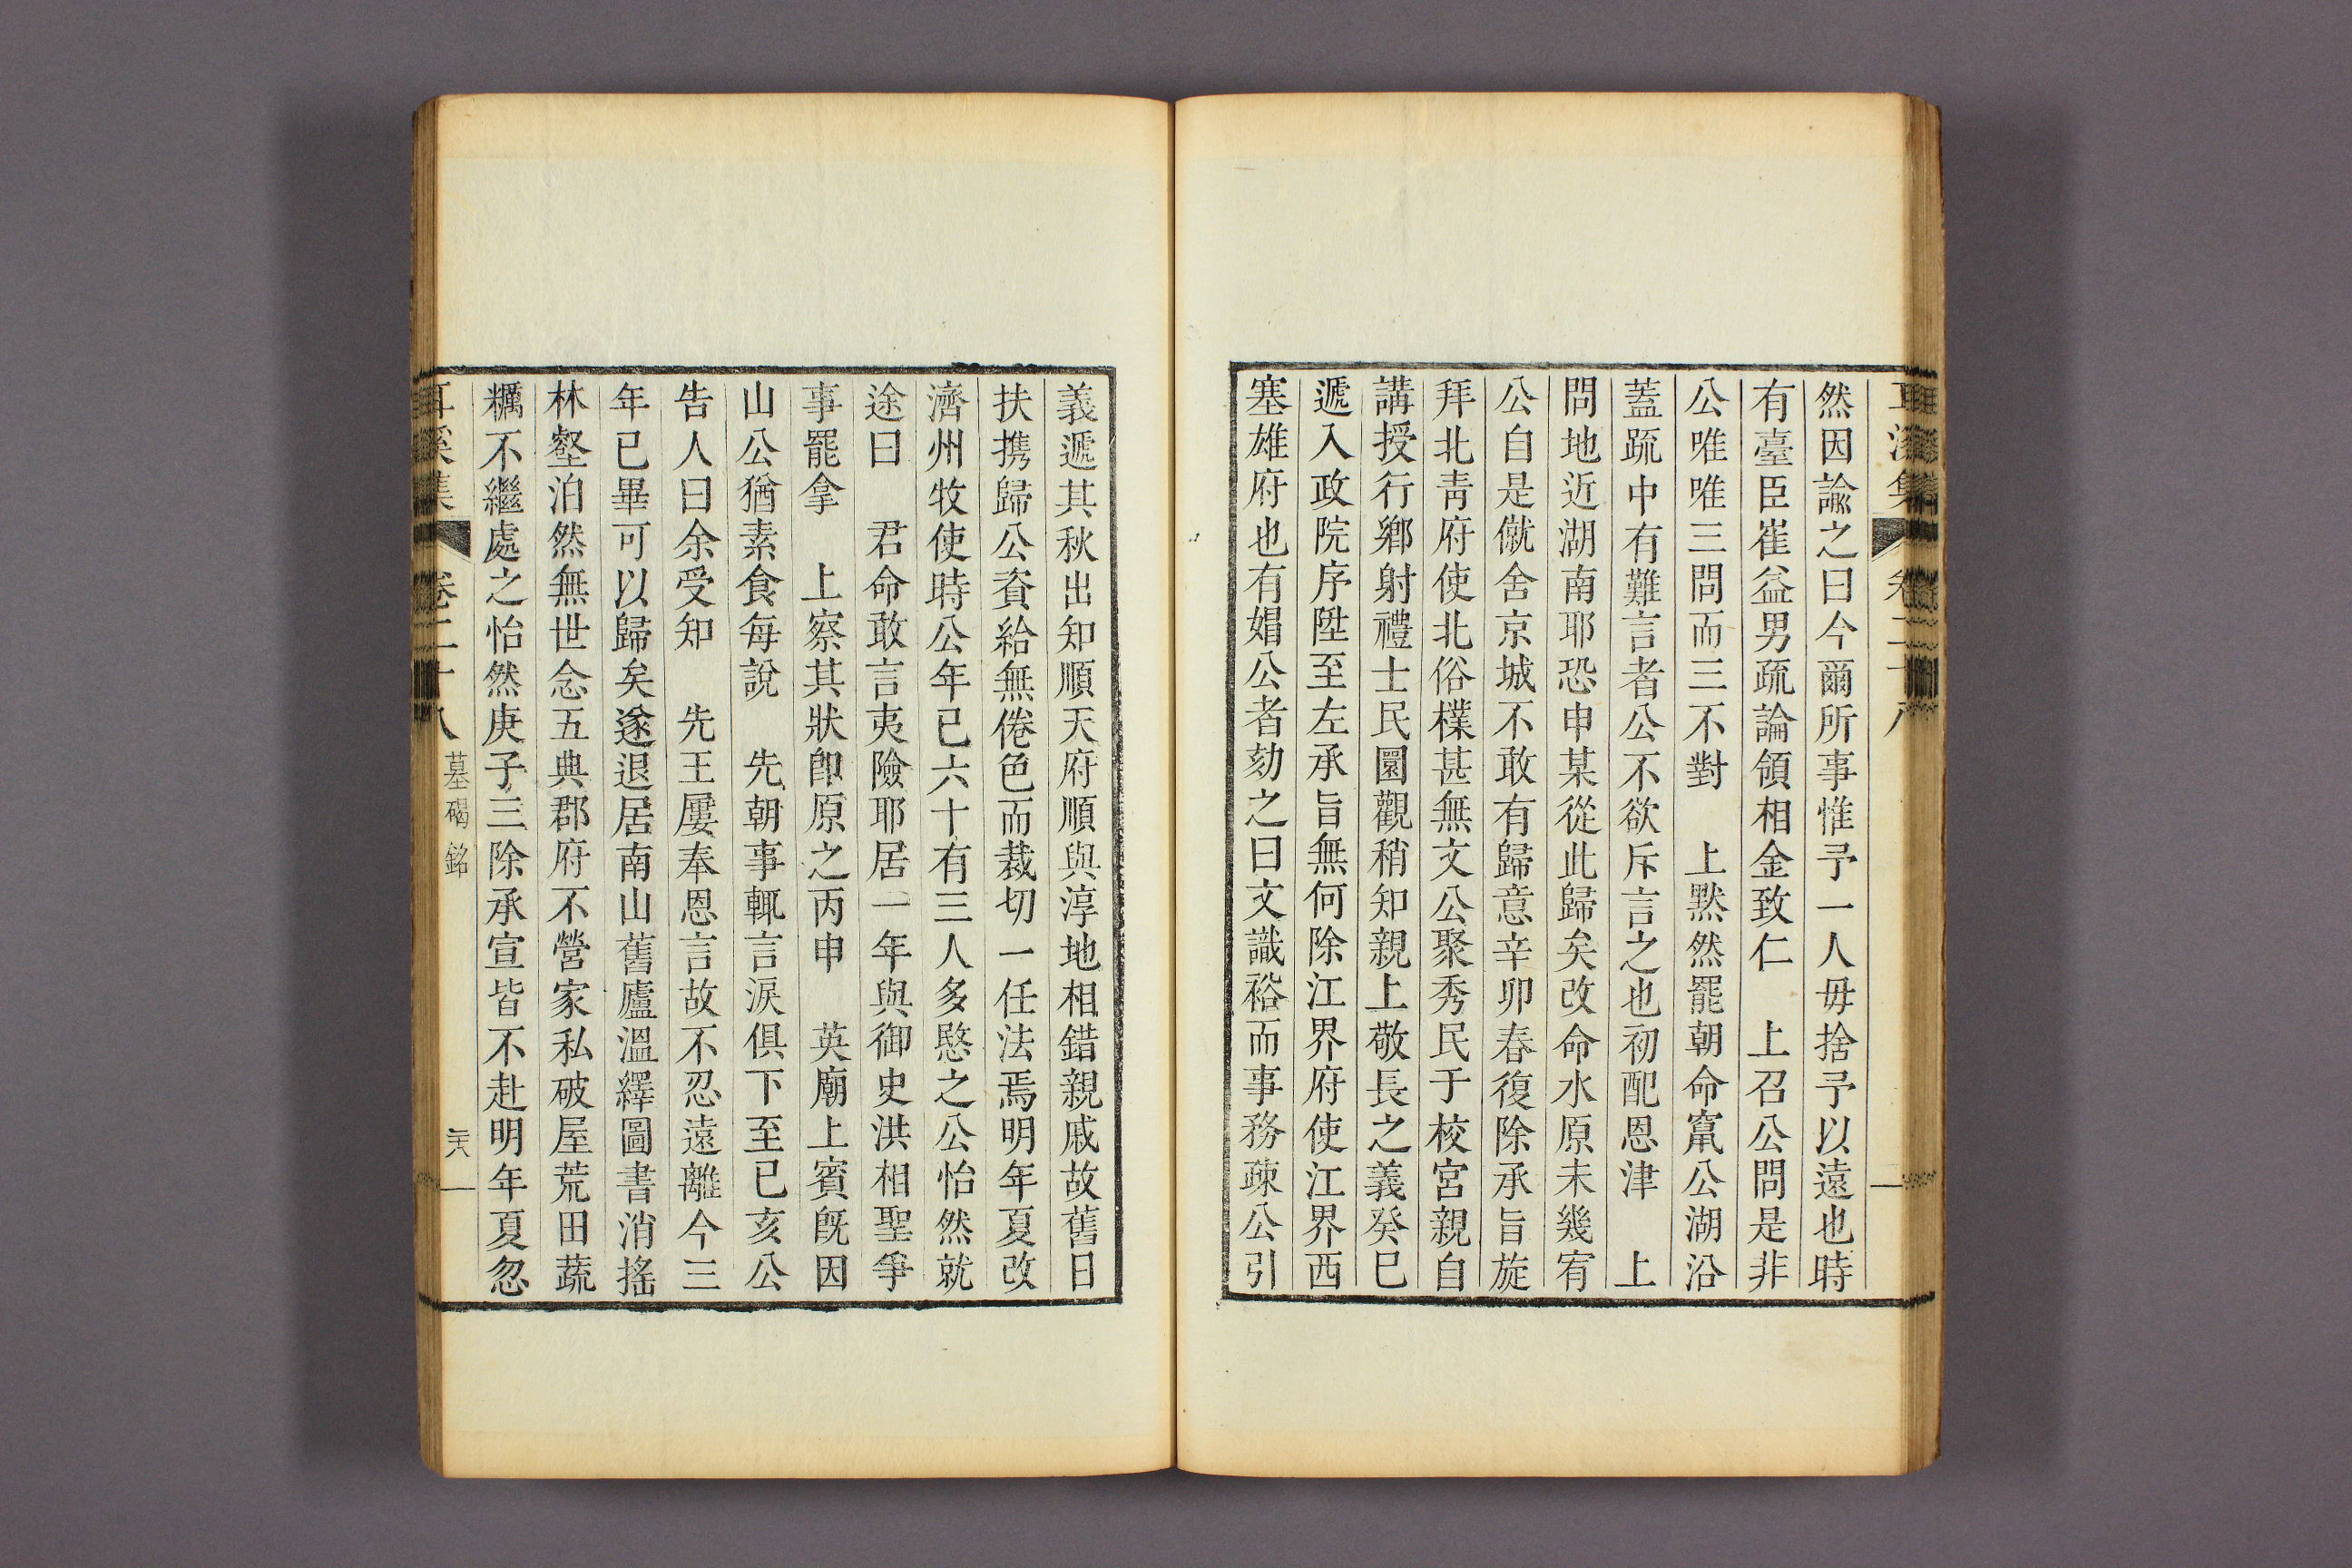 然因諭之曰今爾所事惟予一人毋捨予以遠也時
有臺臣崔益男疏論領相金致仁　上召公問是非
公唯唯三問而三不對　上黙然罷朝命竄公湖沿
蓋疏中有難言者公不欲斥言之也初配恩津　上
問地近湖南耶恐申某從此歸矣改命水原未幾宥
公自是僦舍京城不敢有歸意辛卯春復除承旨旋
拜北靑府使北俗樸甚無文公聚秀民于校宮親自
講授行鄉射禮士民圜觀稍知親上敬長之義癸巳
遞入政院序陞至左承旨無何除江界府使江界西
塞雄府也有娼公者劾之曰文識裕而事務疎公引
義遞其秋出知順天府順與淳地相錯親戚故舊日
扶携歸公資給無倦色而裁切一任法焉明年夏改
濟州牧使時公年已六十有三人多愍之公怡然就
途曰　君命敢言夷險耶居一年與御史洪相聖爭
事罷拿　上察其狀卽原之丙申　英廟上賓旣因
山公猶素食每說　先朝事輒言淚俱下至已亥公
告人曰余受知　先王屢奉恩言故不忍遠離今三
年已畢可以歸矣遂退居南山舊廬溫繹圖書消搖
林壑泊然無世念五典郡府不營家私破屋荒田蔬
糲不繼處之怡然庚子三除承宣皆不赴明年夏忽
耳溪集　卷二十八　墓碣銘　二十六